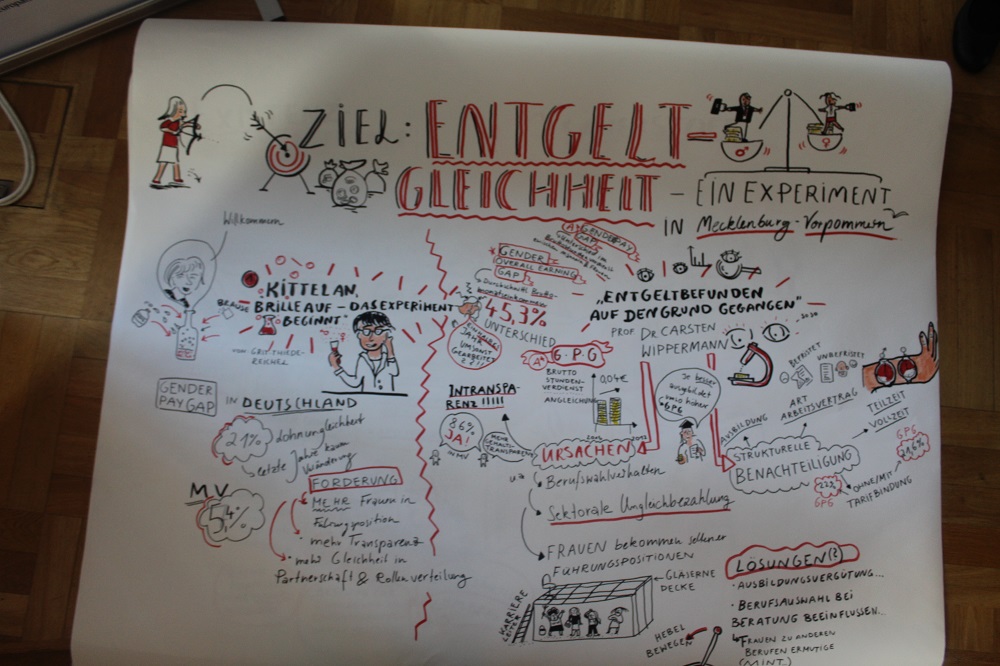 ZIEL: ENTGELT=
GLEICHHEIT - EIN EXPERIMENT
IN Mecklenburg-Vorpommern
Willkommen
KITTEL AN,
BRILLE AUF - DAS EXPERIMENT
BEGINNT"
VON GRIT THIEDE-
REICHEL
GENDER
PAY GAP
IN DEUTSCHLAND
21%
letzte Jahre kaum
MV
5,4%
FORDERUNG
MEHR Frauen in
Führungsposition
mehr Transparenz
mehr Gleichheit in
Partnerschaft & Rollenverteilung
GENDER PAY
GAP
GENDER
OVERALL EARNING
GAP
45,3%
UNTERSCHIED
JAHR
UMSONST
GEARBEITET
G.P.G
BRUTTO
STUNDEN-
VERDIENST
ANGLEICHUNG
0,04€
INTRANSPA-
RENZ !!!!!
86%
JA!
IN MV
"ENTGELTBEFUNDEN
AUF DEN GRUND GEGANGEN"
PROF DR. CARSTEN
WIPPERMANN
Je besser
ausgebildet
umso höher
GPG
URSACHEN
Berufswahlverhalten
Sektorale Ungleichbezahlung
FRAUEN bekommen seltener
FÜHRUNGSPOSITIONEN
GLÄSERNE
DECKE
KARRIERE
LEITER
BEFRISTET
UNBEFRISTET
ART
ARBEITSVERTRAG
AUSBILDUNG
TEILZEIT
VOLLZEIT
STRUKTURELLE
BENACHTEILIGUNG
OHNE/MIT
TARIFBINDUNG
GPG
GPG
LÖSUNGEN(?)
• AUSBILDUNGSVERGÜTUNG...
• BERUFSAUSWAHL BEI
BERATUNG BEEINFLUSSEN...
FRAUEN ZU ANDEREN
BERUFEN ERMUTIGE
(MINT.)
HEBEL
BEWEGEN